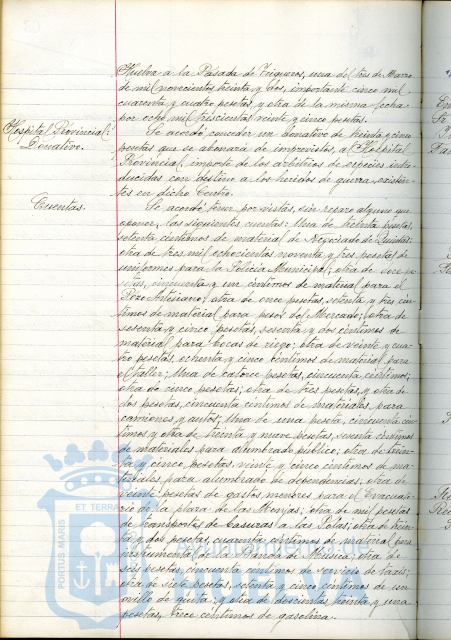 Huelva a la Pasada de Trigueros, una del tres de Marzo
de mil novecientos treinta y dos, importante cinco mil
cuarenta y cuatro pesetas y otra de la misma fecha
por ocho mil trescientas veinte y cinco pesetas.
Hospital Provincial:
Donativo.
Se acordó, conceder un donativo de treinta y cinco
pesetas que se abonará de imprevistos, al Hospital
Provincial, importe de los arbitrios de especies intro
ducidas con destino a los heridos de guerra, existen
tes en dicho Centro.
Cuentas.
Se acordó tener por vistas, sin reparo alguno que
oponer, las siguientes cuentas: Una de treinta pesetas,
setenta céntimos de material de Negociado de Quintas;
otra de tres mil ochocientas noventa y tres pesetas de
uniformes para la Policía Municipal; otra de once pe
setas, cincuenta y un céntimos de material para el
Pozo Artesiano; otra de once pesetas, setenta y tres cén
timos de material para pesos del Mercado; otra de
sesenta y cinco pesetas, sesenta y dos céntimos de
material para bocas de riego; otra de veinte y cua
tro pesetas, ochenta y cinco céntimos de material para
el taller; Una de catorce pesetas, cincuenta céntimos;
otra de cinco pesetas; otra de tres pesetas, y otra de
dos pesetas, cincuenta céntimos de materiales para
camiones y autos; Una de una peseta, cincuenta cén
timos y otra de treinta y nueve pesetas, setenta céntimos
de materiales para alumbrado público; otra de trein
ta y cinco pesetas, veinte y cinco céntimos de ma
teriales para alumbrado de dependencias; otra de
veinte pesetas de gastos menores para el Evacuato
rio de la plaza de las Monjas; otra de mil pesetas
de transportes de basuras a las Pilas; otra de trein
ta y dos pesetas, cuarenta céntimos de material para
instrumental de la Banda de Música; otra de
seis pesetas, cincuenta céntimos de servicio de taxis;
otra de siete pesetas, setenta y cinco céntimos de un
ovillo de guita; y otra de doscientas treinta y una
pesetas, trece céntimos de gasolina.
PORTUS MARIS
ET TERRAE